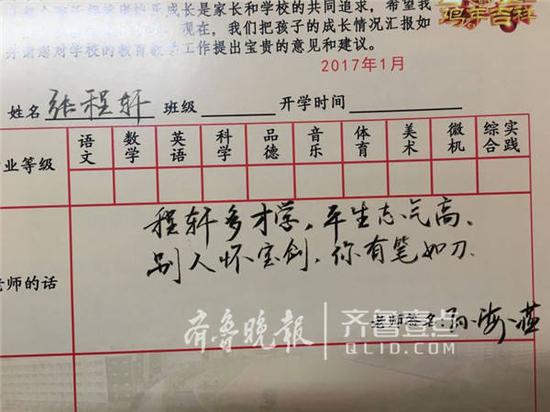 鸡年吉祥
成长是家长和学校的共同追求，希望我
现在，我们把孩子的成长情况汇报如
您对学校的教育教学工作提出宝贵的意见和建议。
2017年1月
姓名 张程轩 班级 开学时间
业等级 语文 数学 英语 科学 品德 音乐 体育 美术 微机 综合实践
老师的话
程轩多才学，平生志气高，
别人怀宝剑，你有笔如刀。
老师签名：海燕
齐鲁晚报 齐鲁壹点
QLID.COM